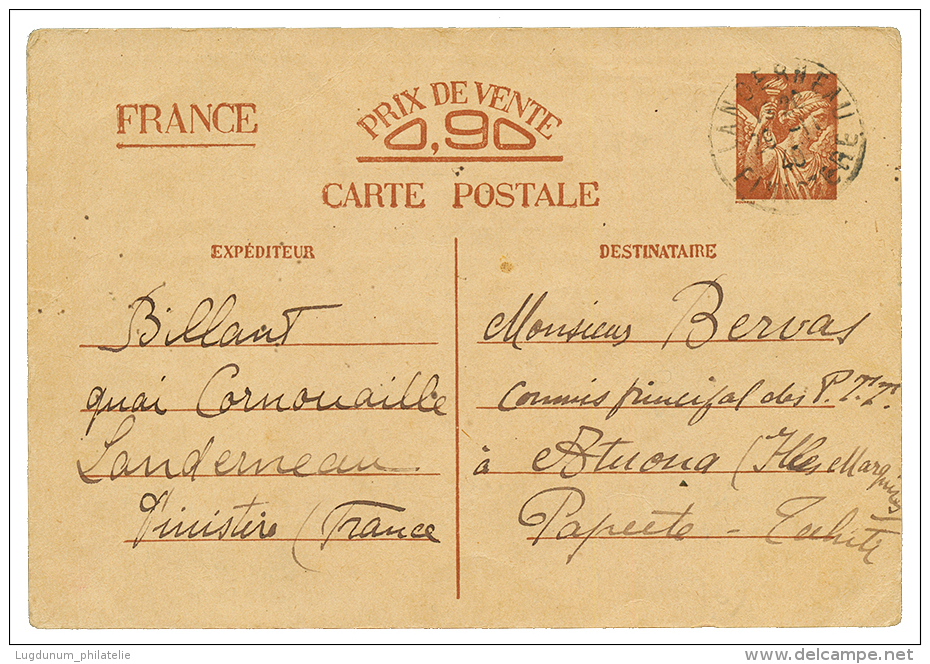 FRANCE
PRIX DE VENTE
0,90
CARTE POSTALE
LANDERNEAU
FINISTERE
40
EXPÉDITEUR
Billant
quai Cornouaille
Landerneau
Finistère (France
DESTINATAIRE
Monsieur Bervas
Commis principal des P.T.T.
à Atuona (Iles Marquises
Papeete - Tahiti
Lugdunum_philatelie
www.delcampe.net